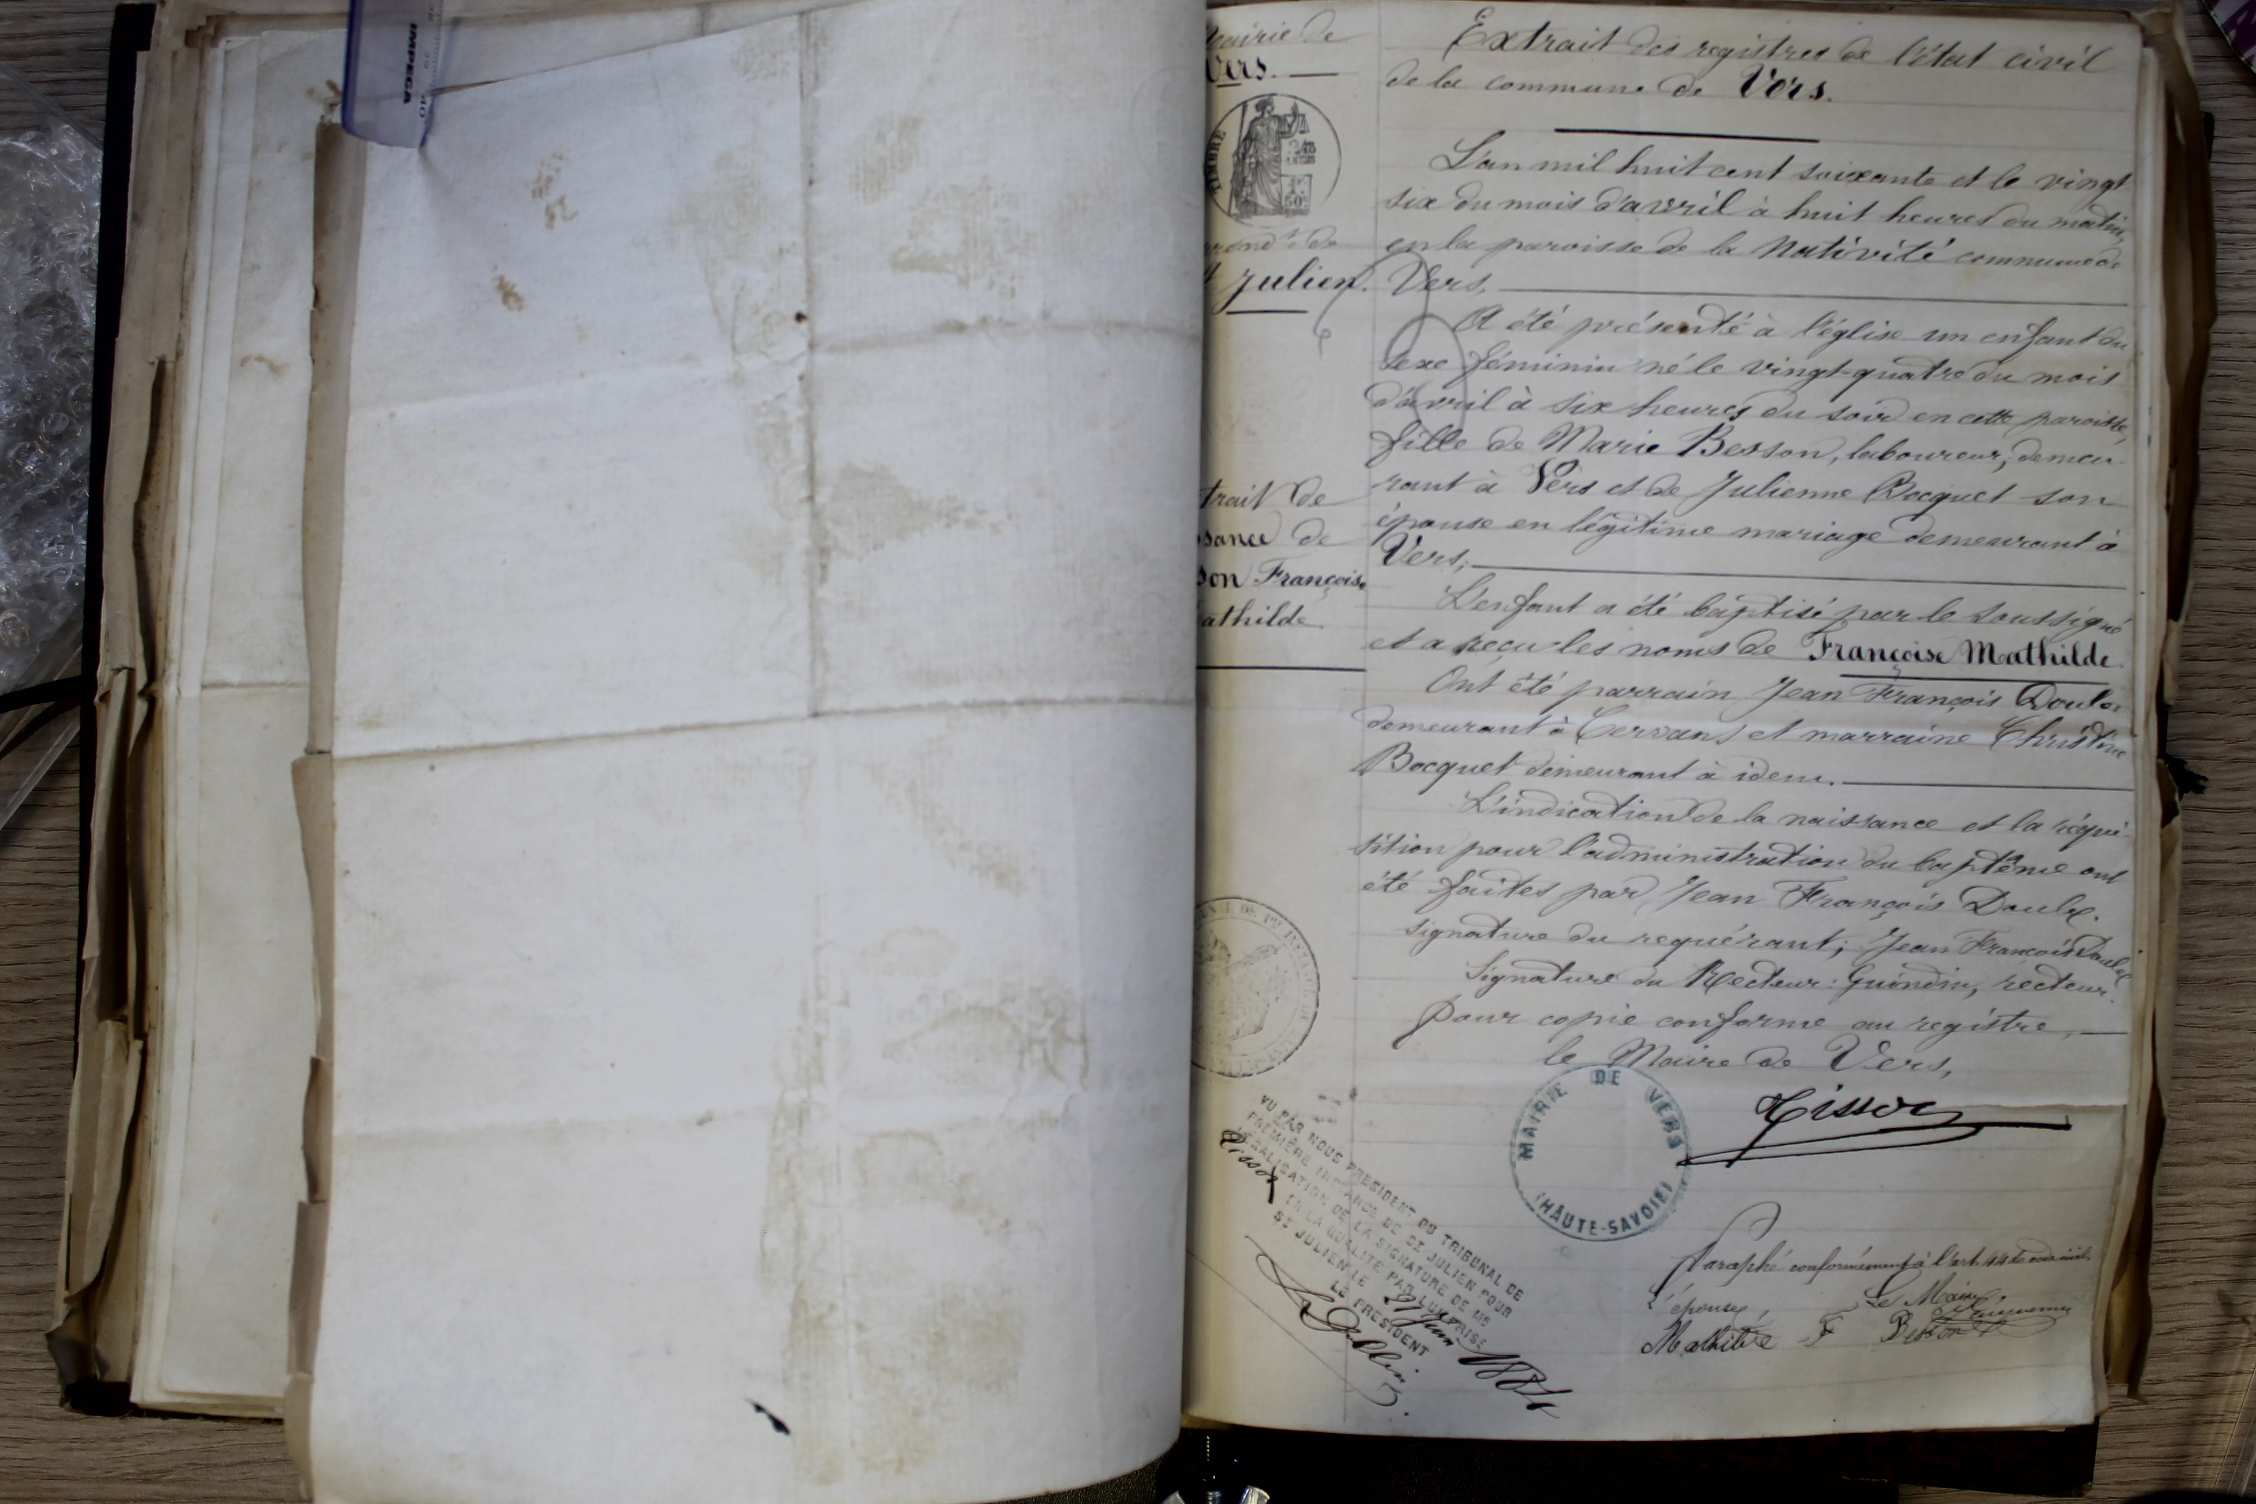 IMPEGA
Mairie de
Vers.
TIMBRE
50c
St Julien.
trait de
sance de
son Françoise
athilde
Extrait des registres de l'état civil
de la commune de Vers.
L'an mil huit cent soixante et le vingt
six du mois d'avril à huit heures du matin,
en la paroisse de la Nativité commune de
Vers,
A été présenté à l'église un enfant du
sexe féminin né le vingt-quatre du mois
d'avril à six heures du soir en cette paroisse,
fille de Marie Besson, laboureur, demeu-
rant à Vers et de Julienne Bocquet son
épouse en légitime mariage demeurant à
Vers;
L'enfant a été baptisé par le soussigné
et a reçu les noms de Françoise Mathilde.
Ont été parrain Jean François
demeurant à et marraine Christine
Bocquet demeurant à idem.
L'indication de la naissance et la réqui-
sition pour l'administration du baptême ont
été faites par Jean François
Signature du requérant; Jean François
Signature du Recteur: recteur.
Pour copie conforme au registre,
le Maire de Vers,
Tissot
MAIRIE DE VERS
(HAUTE-SAVOIE)
VU PAR NOUS PRESIDENT DU TRIBUNAL DE
PREMIÈRE INSTANCE DE ST JULIEN POUR
LEGALISATION DE LA SIGNATURE DE Mr
Tissot
EN LA QUALITE PAR LUI PRISE
ST JULIEN LE 21 Juin 1884
LE PRESIDENT
Paraphé conformément à l'art. 44 du code civil.
L'épouse, Le Maire
Mathilde F Besson